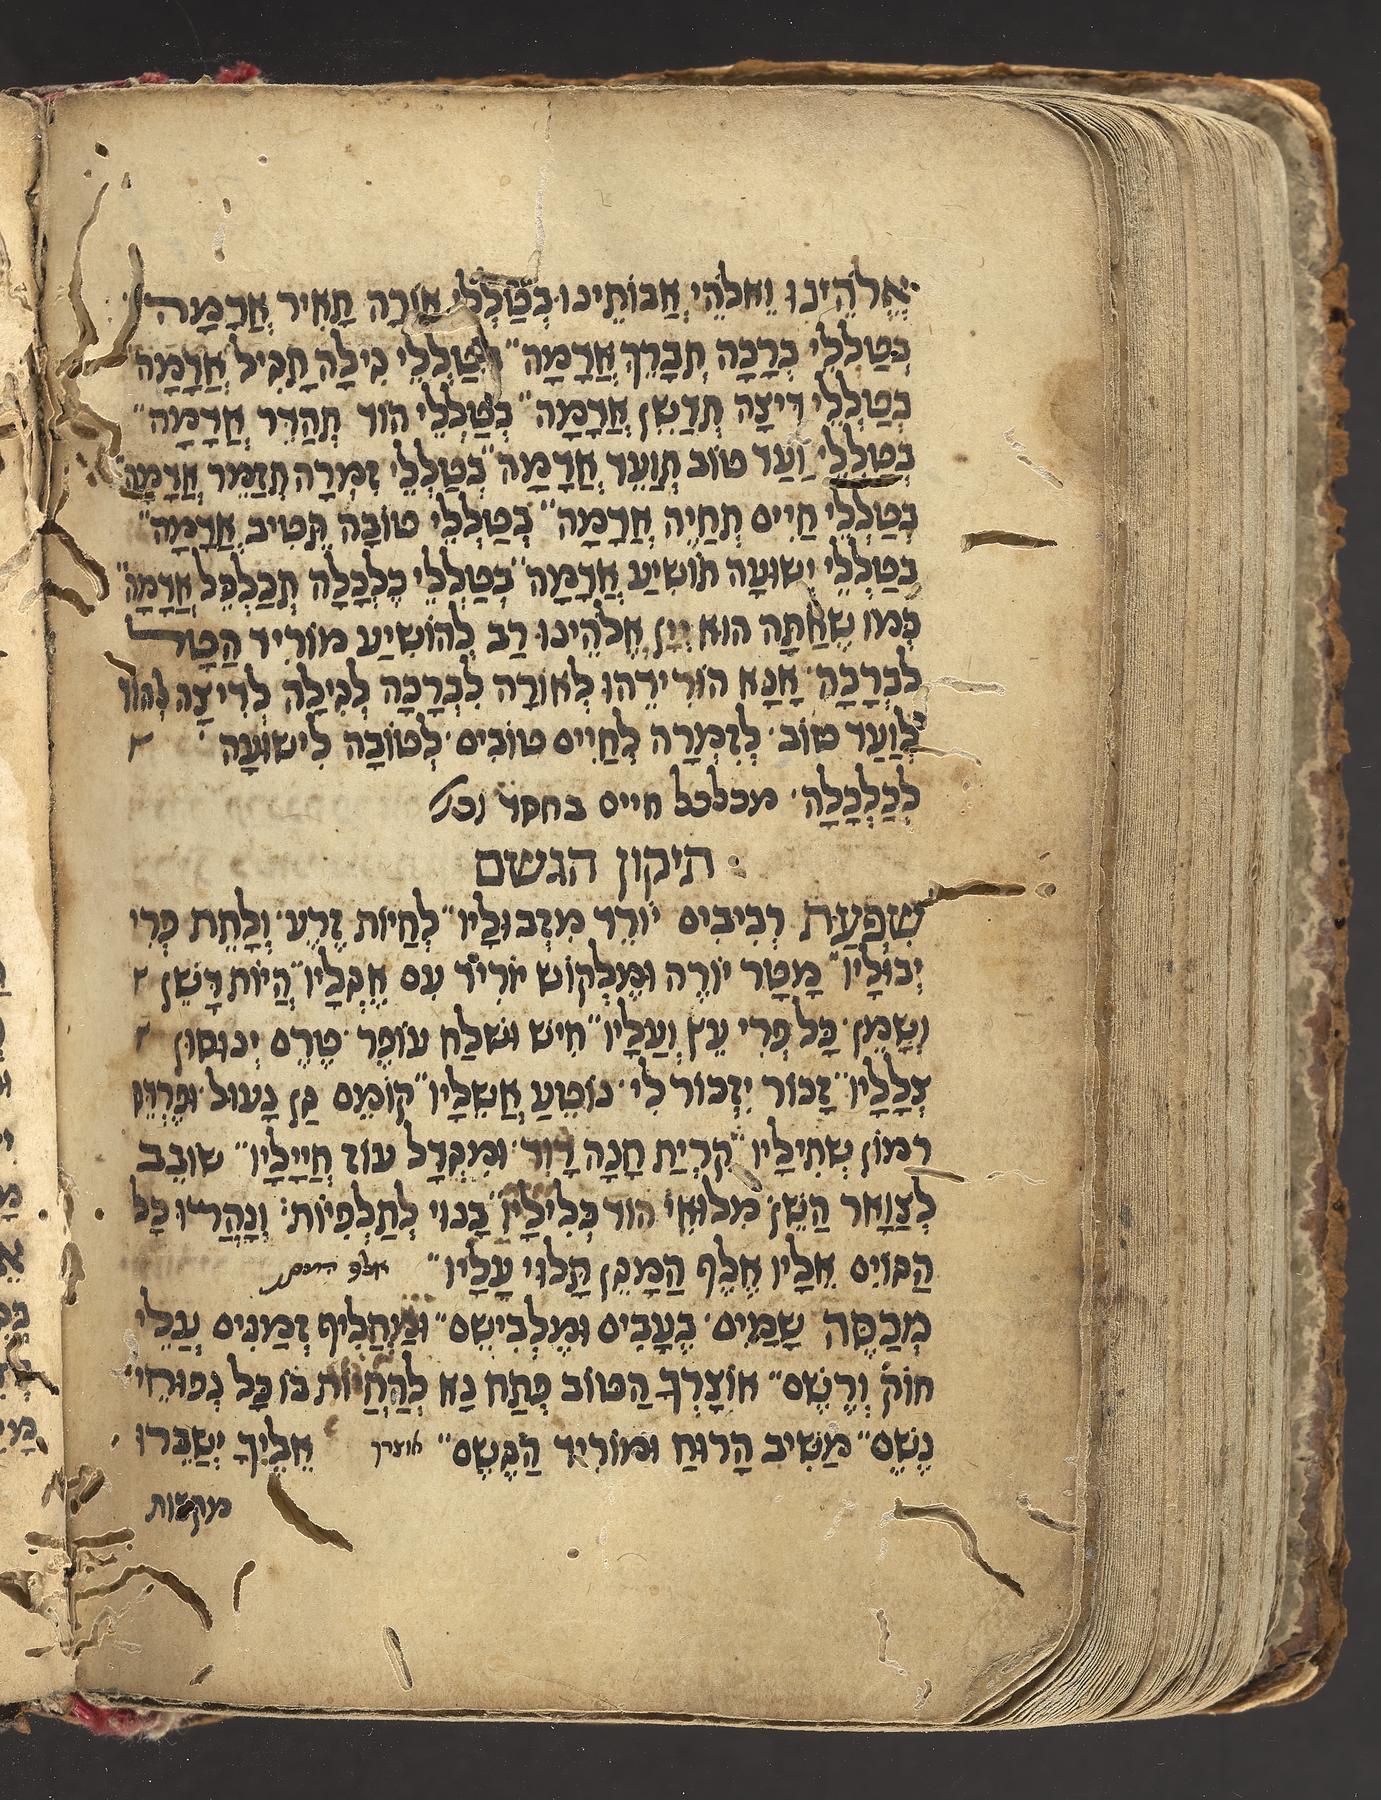 אֱלֹהֵינוּ וֵאלֹהֵי אֲבוֹתֵינוּ בְּטַלְלֵי אוֹרָה תָּאִיר אֲדָמָה
בְּטַלְלֵי בְּרָכָה תְּבָרֵךְ אֲדָמָה״ בְּטַלְלֵי גִילָה תָגִיל אֲדָמָה
בְּטַלְלֵי דִיצָה תְדַשֵּׁן אֲדָמָה״ בְּטַלְלֵי הוֹד תְּהַדֵּר אֲדָמָה״
בְּטַלְלֵי וַעַד טוֹב תְּוַעֵד אֲדָמָה״ בְּטַלְלֵי זִמְרָה תְּזַמֵּר אֲדָמָה
בְּטַלְלֵי חַיִּים תְּחַיֶּה אֲדָמָה״ בְּטַלְלֵי טוֹבָה תֵּטִיב אֲדָמָה״
בְּטַלְלֵי יְשׁוּעָה תּוֹשִׁיעַ אֲדָמָה״ בְּטַלְלֵי כַלְכָּלָה תְּכַלְכֵּל אֲדָמָה״
כְּמוֹ שֶׁאַתָּה הוּא יְיָ אֱלֹהֵינוּ רַב לְהוֹשִׁיעַ מוֹרִיד הַטָּל
לִבְרָכָה׳ אָנָּא הוֹרִידֵהוּ לְאוֹרָה לִבְרָכָה לְגִילָה לְדִיצָה לְהוֹד
לְוַעַד טוֹב׳ לְזִמְרָה לְחַיִּים טוֹבִים׳ לְטוֹבָה לִישׁוּעָה
לְכַלְכָּלָה׳ מכלכל חיים בחסד וכו׳
תיקון הגשם
שִׁפְעַת רְבִיבִים יוֹרֵד מִזְּבוּלָיו״ לְחַיּוֹת זֶרַע׳ וְלָתֵת פְּרִי
יְבוּלָיו״ מָטָר יוֹרֶה וּמַלְקוֹשׁ יוֹרִיד עִם אֶגְלָיו״ הֱיוֹת דָּשֵׁן
וְשָׁמֵן׳ כָּל פְּרִי עֵץ וְעָלָיו״ חִישׁ וּשְׁלַח עוֹפֶר׳ טֶרֶם יְנוּסוּן
צְלָלָיו״ זָכוֹר יִזְכּוֹר לִי׳ נוֹטֵעַ אֲשֵׁלָיו״ קוֹמֵם גַּן נָעוּל׳ וּפַרְדֵּס
רִמּוֹן שְׁתִילָיו״ קִרְיַת חָנָה דָוִד׳ וּמִגְדַּל עוֹז חֲיָילָיו״ שׁוֹבֵב
לְצַוָּאר הַשֵּׁן׳ מִלּוּאֵי הוֹד כְּלִילָיו״ בָּנוּי לְתַלְפִּיּוֹת״ וְנָהֲרוּ כָּל
הַגּוֹיִם אֵלָיו אֶלֶף הַמָּגֵן תָּלוּי עָלָיו״ אלף המגן
מְכַסֶּה שָׁמַיִם׳ בְּעָבִים וּמַלְבִּישֵׁם״ וּמַחֲלִיף זְמַנִּים עֲלֵי
חוֹק וְרֶשֶׁם״ אוֹצָרְךָ הַטּוֹב פְּתַח נָא לְהַחֲיוֹת בּוֹ כָּל נְפוּחֵי
נֶשֶׁם״ מַשִּׁיב הָרוּחַ וּמוֹרִיד הַגֶּשֶׁם״ אוצרך אֵלֶיךָ יְשַׂבֵּרוּ
מקצות